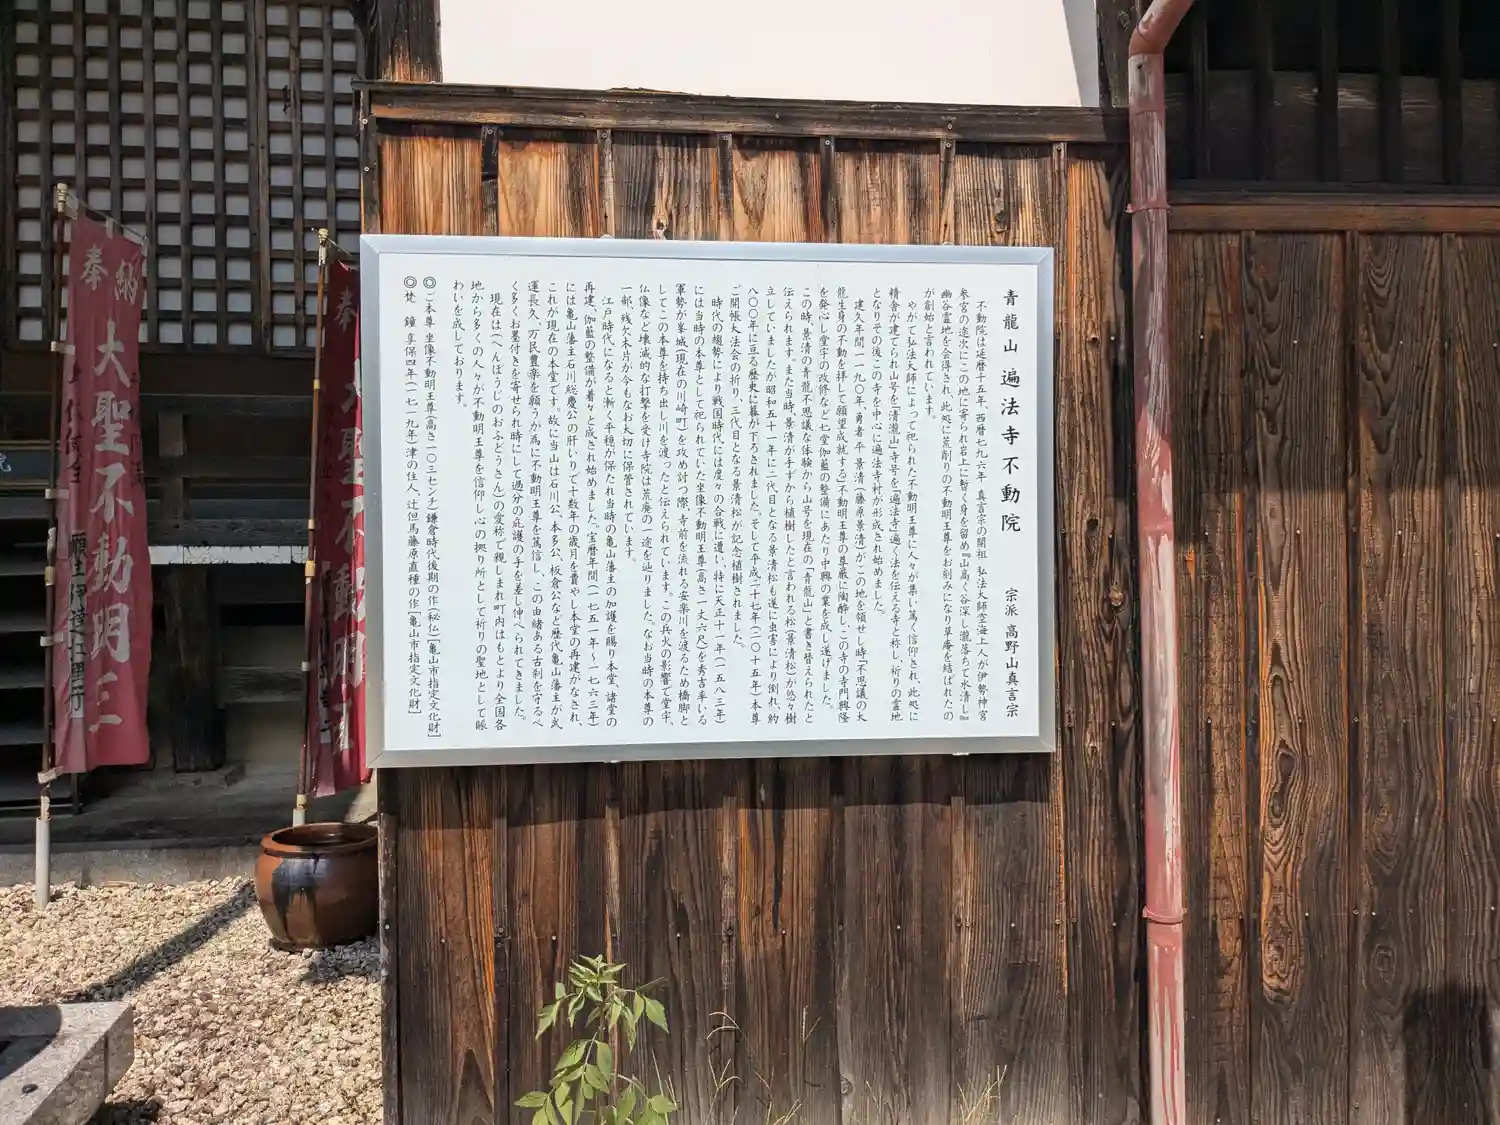 青龍山遍法寺不動院　宗派 高野山真言宗
不動院は延暦十五年、西暦七九六年 真言宗の開祖 弘法大師空海上人が伊勢神宮
参宮の途次にこの地に寄られ岩上に暫く身を留め『山高く谷深し瀧落ちて水清し』
幽谷霊地を会得され、此処に荒削りの不動明王尊をお刻みになり草庵を結ばれたの
が創始と言われています。
やがて弘法大師によって祀られた不動明王尊に人々が集い篤く信仰され、此処に
精舎が建てられ山号を「清瀧山」寺号を「遍法寺」遍く法を伝える寺と称し、祈りの霊地
となりその後この寺を中心に遍法寺村が形成され始めました。
建久年間一一九〇年、勇者 平 景清(藤原景清)がこの地を領せし時『不思議の大
龍生身の不動を拝して願望成就する』不動明王尊の尊厳に陶酔し、この寺の寺門興隆
を発心し堂宇の改修など七堂伽藍の整備にあたり中興の業を成し遂げました。
この時、景清の青龍不思議な体験から山号を現在の「青龍山」と書き替えられたと
伝えられます。また当時、景清が手ずから植樹したと言われる松(景清松)が悠々樹
立していましたが昭和五十一年に二代目となる景清松も遂に虫害により倒れ、約
八〇〇年に亘る歴史に幕が下ろされました。そして平成二十七年(二〇十五年)本尊
ご開帳大法会の折り、三代目となる景清松が記念植樹されました。
時代の趨勢により戦国時代には度々の合戦に遭い、特に天正十一年(一五八三年)
には当時の本尊として祀られていた坐像不動明王尊(高さ一丈六尺)を秀吉率いる
軍勢が峯城(現在の川崎町)を攻め討つ際、寺前を流れる安楽川を渡るため橋脚と
してこの本尊を持ち出し川を渡ったと伝えられています。この兵火の影響で堂宇、
仏像など壊滅的な打撃を受け寺院は荒廃の一途を辿りました。なお当時の本尊の
一部、残欠木片が今もなお大切に保管されています。
江戸時代になると漸く平穏が保たれ当時の亀山藩主の加護を賜り本堂、諸堂の
再建、伽藍の整備が着々と成され始めました。宝暦年間(一七五一年〜一七六三年)
には亀山藩主石川総慶公の肝いりで十数年の歳月を費やし本堂の再建がなされ、
これが現在の本堂です。故に当山は石川公、本多公、板倉公など歴代亀山藩主が武
運長久、万民豊楽を願うが為に不動明王尊を篤信し、この由緒ある古刹を守るべ
く多くお墨付きを寄せられ時にして過分の庇護の手を差し伸べられてきました。
現在は(へんぽうじのおふどうさん)の愛称で親しまれ町内はもとより全国各
地から多くの人々が不動明王尊を信仰し心の拠り所として祈りの聖地として賑
わいを成しております。
◎ご本尊 坐像不動明王尊(高さ一〇三センチ)鎌倉時代後期の作(秘仏)[亀山市指定文化財]
◎梵　鐘 享保四年(一七一九年)津の住人、辻但馬藤原直種の作[亀山市指定文化財]
奉納
大聖不動明王
奉
大聖不動明王